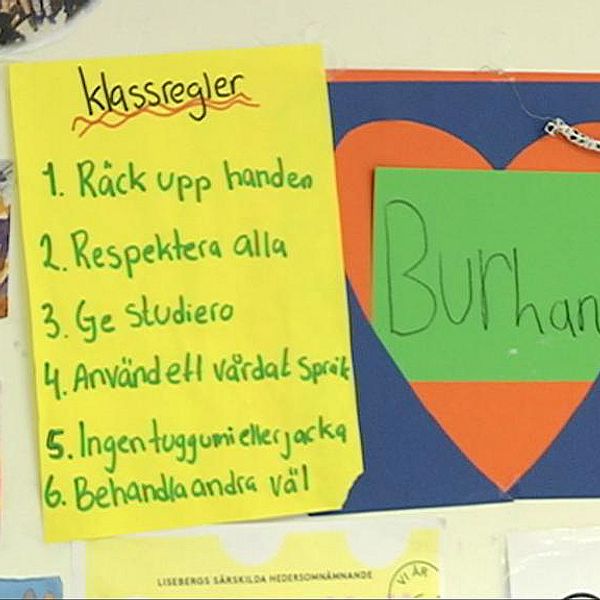 klassregler
1. Räck upp handen
2. Respektera alla
3. Ge studiero
4. Använd ett vårdat språk
5. Ingen tuggumi eller jacka
6. Behandla andra väl
Burhan
LISEBERGS SÄRSKILDA HEDERSOMNÄMNANDE
VI ÄR